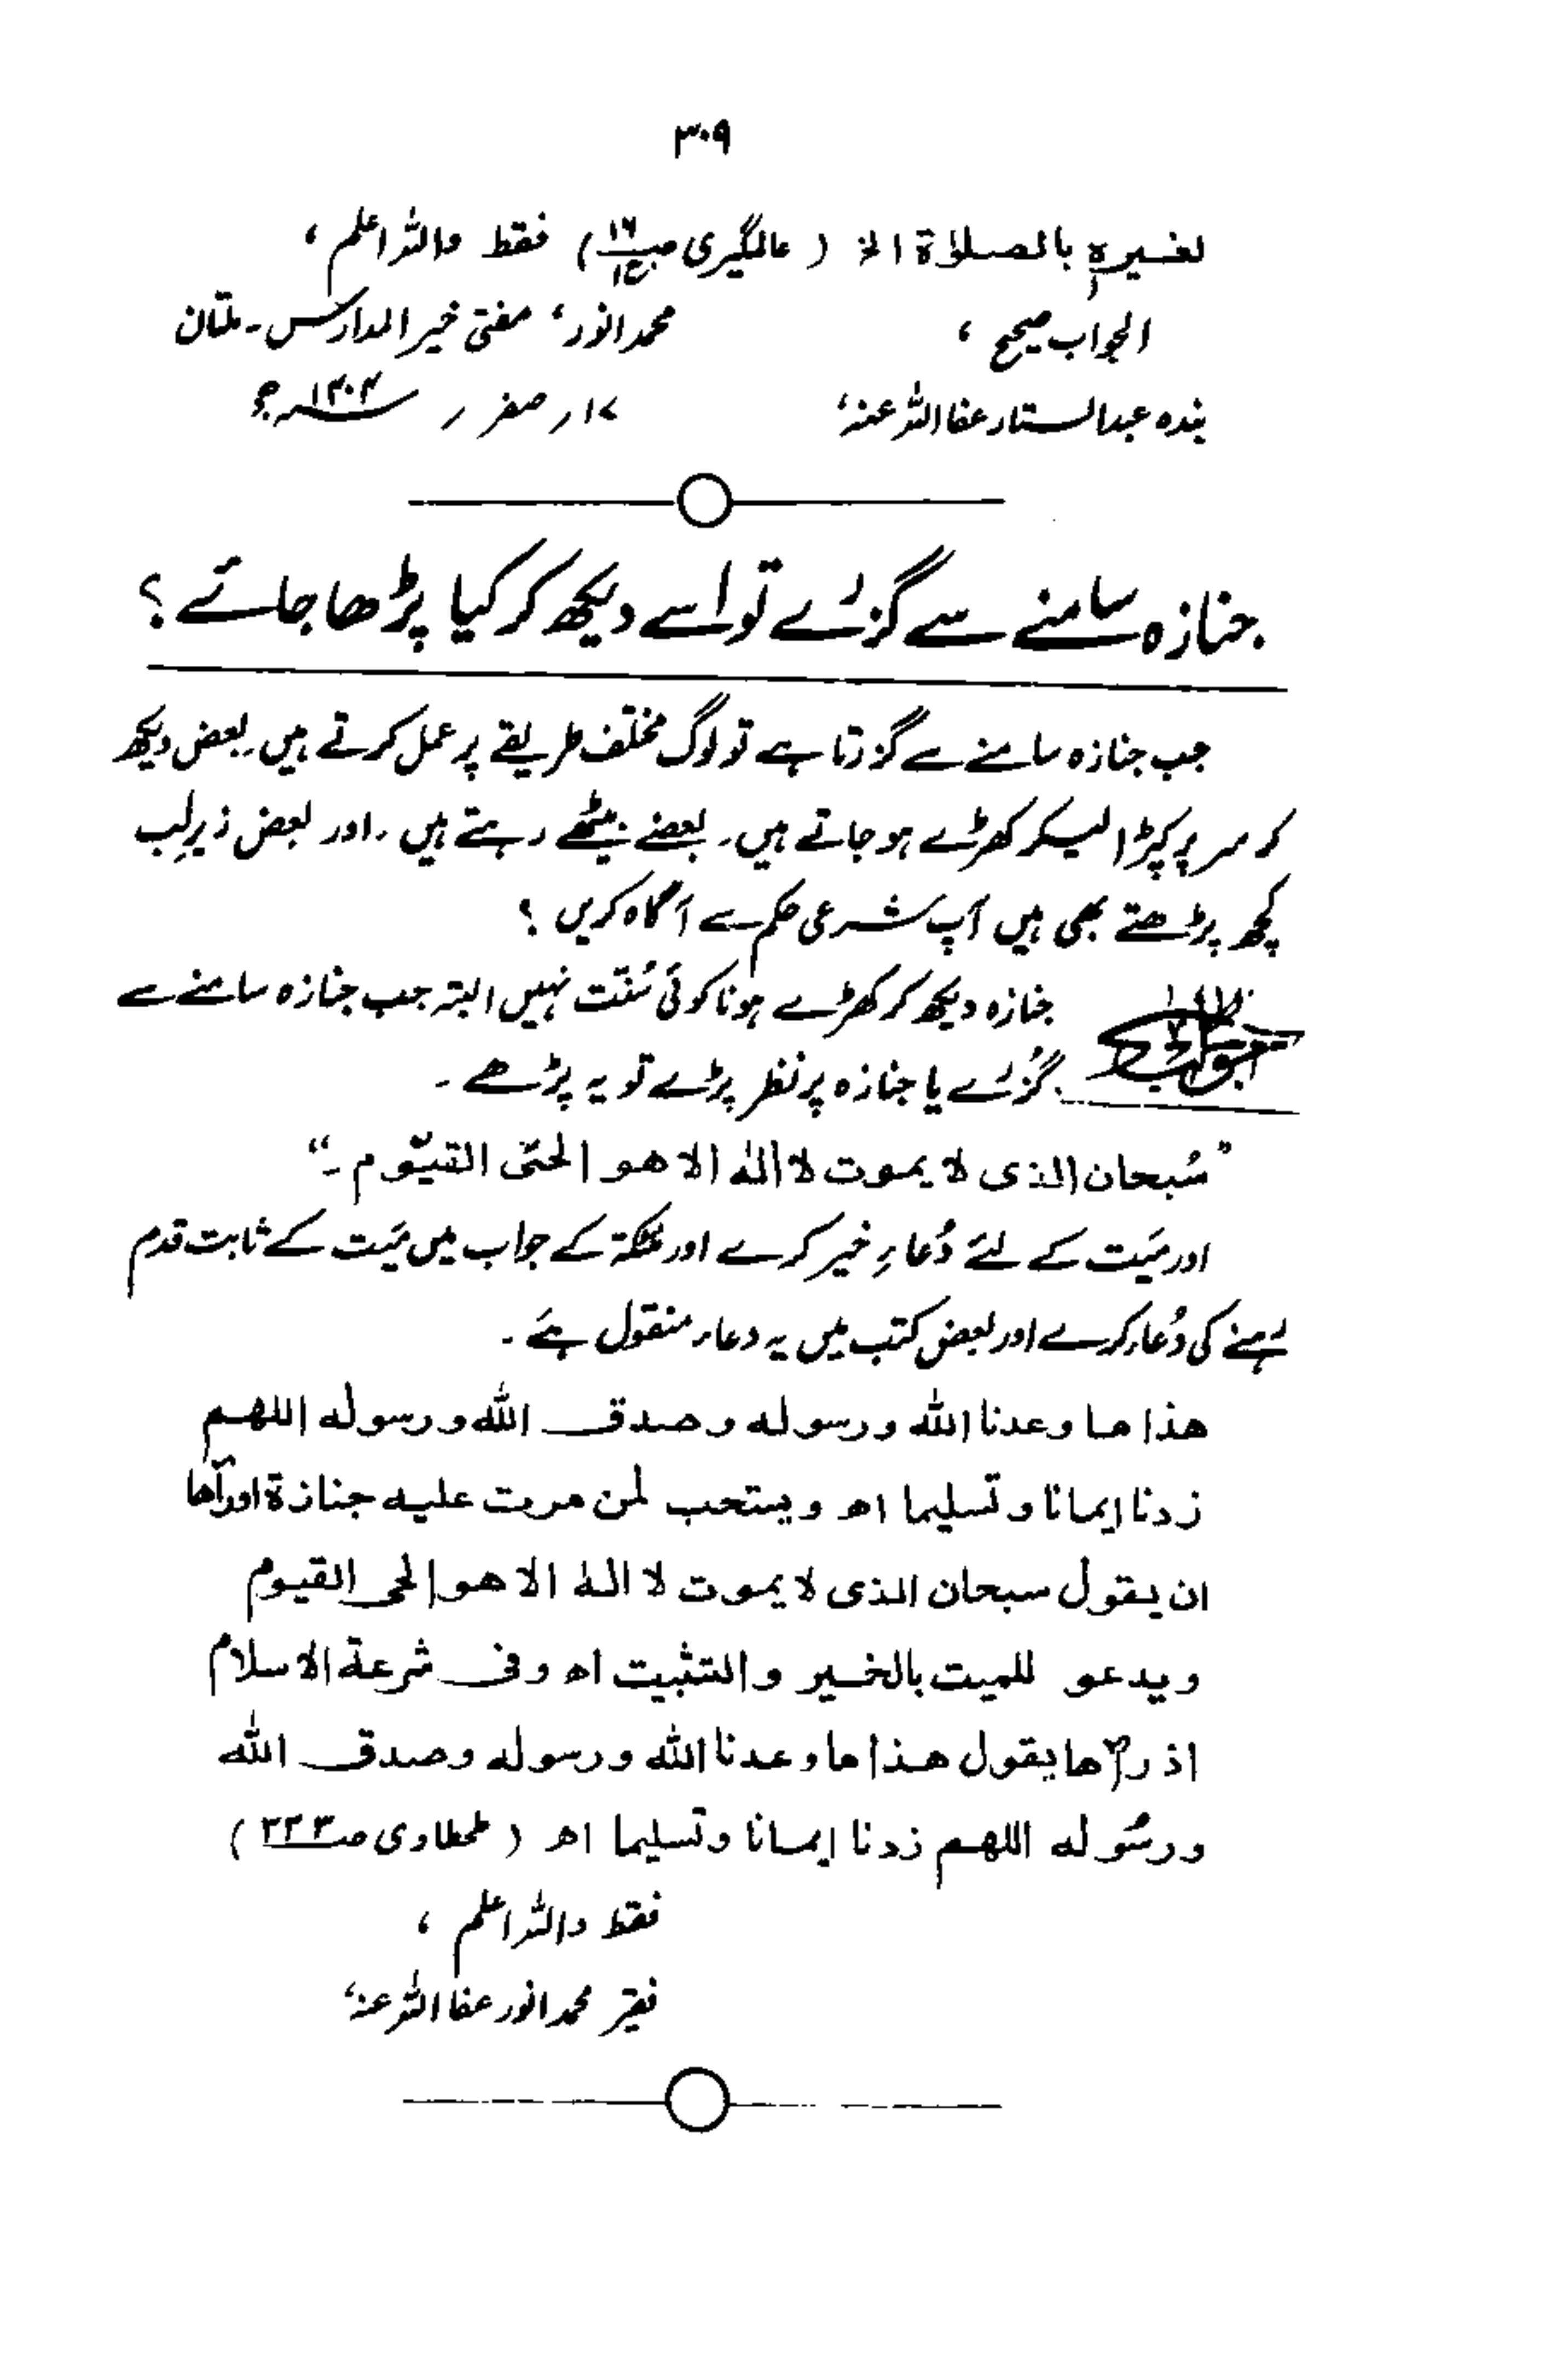 ۳۰۹
لغيره بالصلاة الخ ( عالمگیری ) فقط واللہ اعلم ،
الجواب صحیح ،
محمد انور ، مفتی خیر المدارس ۔ ملتان
بندہ عبدالستار عفا اللہ عنہ ،
صفر
جنازہ سامنے سے گزرے تو اسے دیکھ کر کیا پڑھا جائے ؟
جب جنازہ سامنے سے گزرتا ہے تو لوگ مختلف طریقے پر عمل کرتے ہیں۔ بعض دیکھ
کر سر پر کپڑا لیکر کھڑے ہو جاتے ہیں۔ بعضے بیٹھے رہتے ہیں ۔ اور بعض زیرِ لب
کچھ پڑھتے بھی ہیں آپ شرعی حکم سے آگاہ کریں ؟
الجواب جنازہ دیکھ کر کھڑے ہونا کوئی سُنّت نہیں البتہ جب جنازہ سامنے سے
گزُرے یا جنازہ پر نظر پڑے تو یہ پڑھے ۔
"سُبحان الذی لا یموت لا الٰہ الا ھو الحیّ القیّوم ۔"
اور میّت کے لئے دُعاءِ خیر کرے اور کے جواب میں میّت کے ثابت قدم
رہنے کی دُعاء کرے اور بعض کتب میں یہ دعاء منقول ہے ۔
هذا ما وعدنا الله ورسوله وصدق الله ورسوله اللهم
زدنا ايمانا وتسليما اھ ويستحب لمن مرت عليه جنازة اورآها
ان يقول سبحان الذى لا يموت لا الٰه الا هو الحى القيوم
ويدعو للميت بالخير والتثبيت اھ وفى شرعة الاسلام
اذ رآها يقول هذا ما وعدنا الله ورسوله وصدق الله
ورسُوله اللهم زدنا ايمانا وتسليما اھ ( طحطاوی صـ۳۳۳ )
فقط واللہ اعلم ،
فقیر محمد انور عفا اللہ عنہ ،